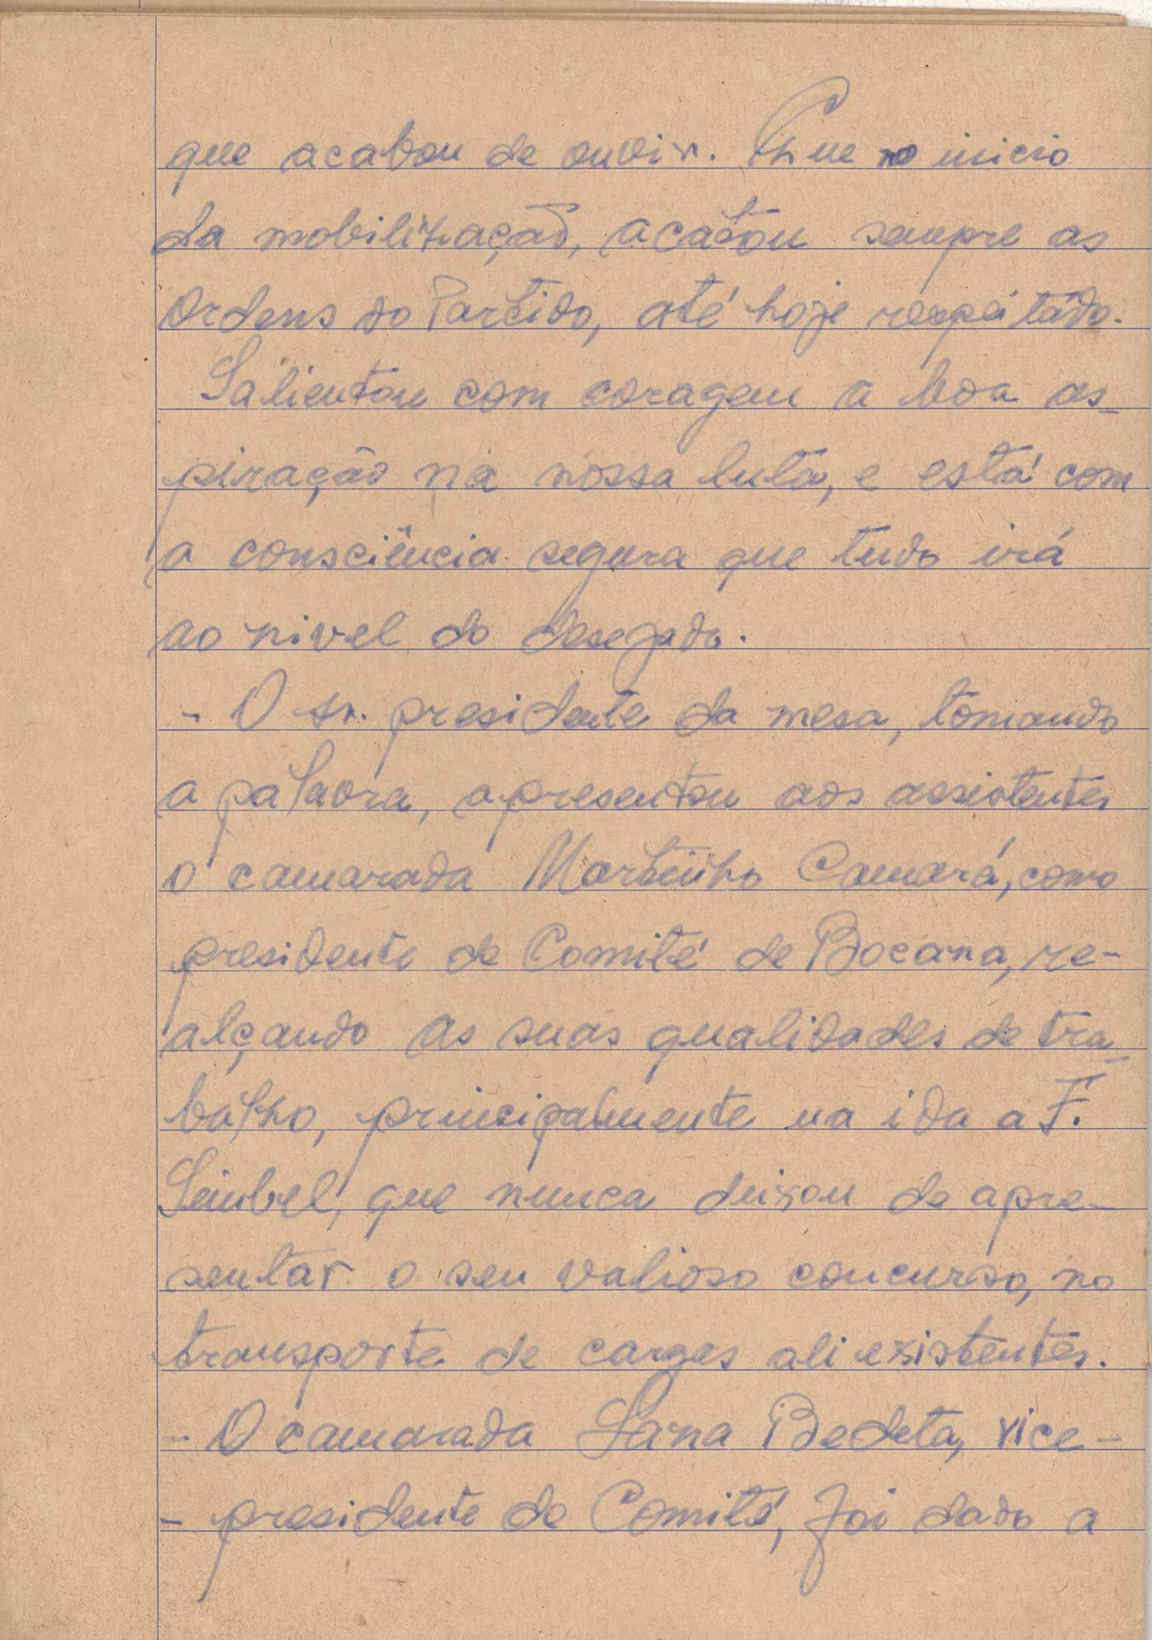 que acabou de ouvir. Que no inicio
da mobilização, acatou sempre as
Ordens do Partido, até hoje respeitado.
Salientou com coragem a boa as-
piração na nossa luta, e está com
a consciência segura que tudo irá
ao nivel do desejado.
- O sr. presidente da mesa, tomando
a palavra, apresentou aos assistentes
o camarada Martinho Camará, como
presidente de Comité de Bocana, re-
alçando as suas qualidades de tra-
balho, principalmente na ida a F.
Seimbel, que nunca deixou de apre-
sentar o seu valioso concurso, no
transporte de cargas ali existentes.
- O camarada Sana Bedeta, vice-
- presidente de Comité, foi dado a